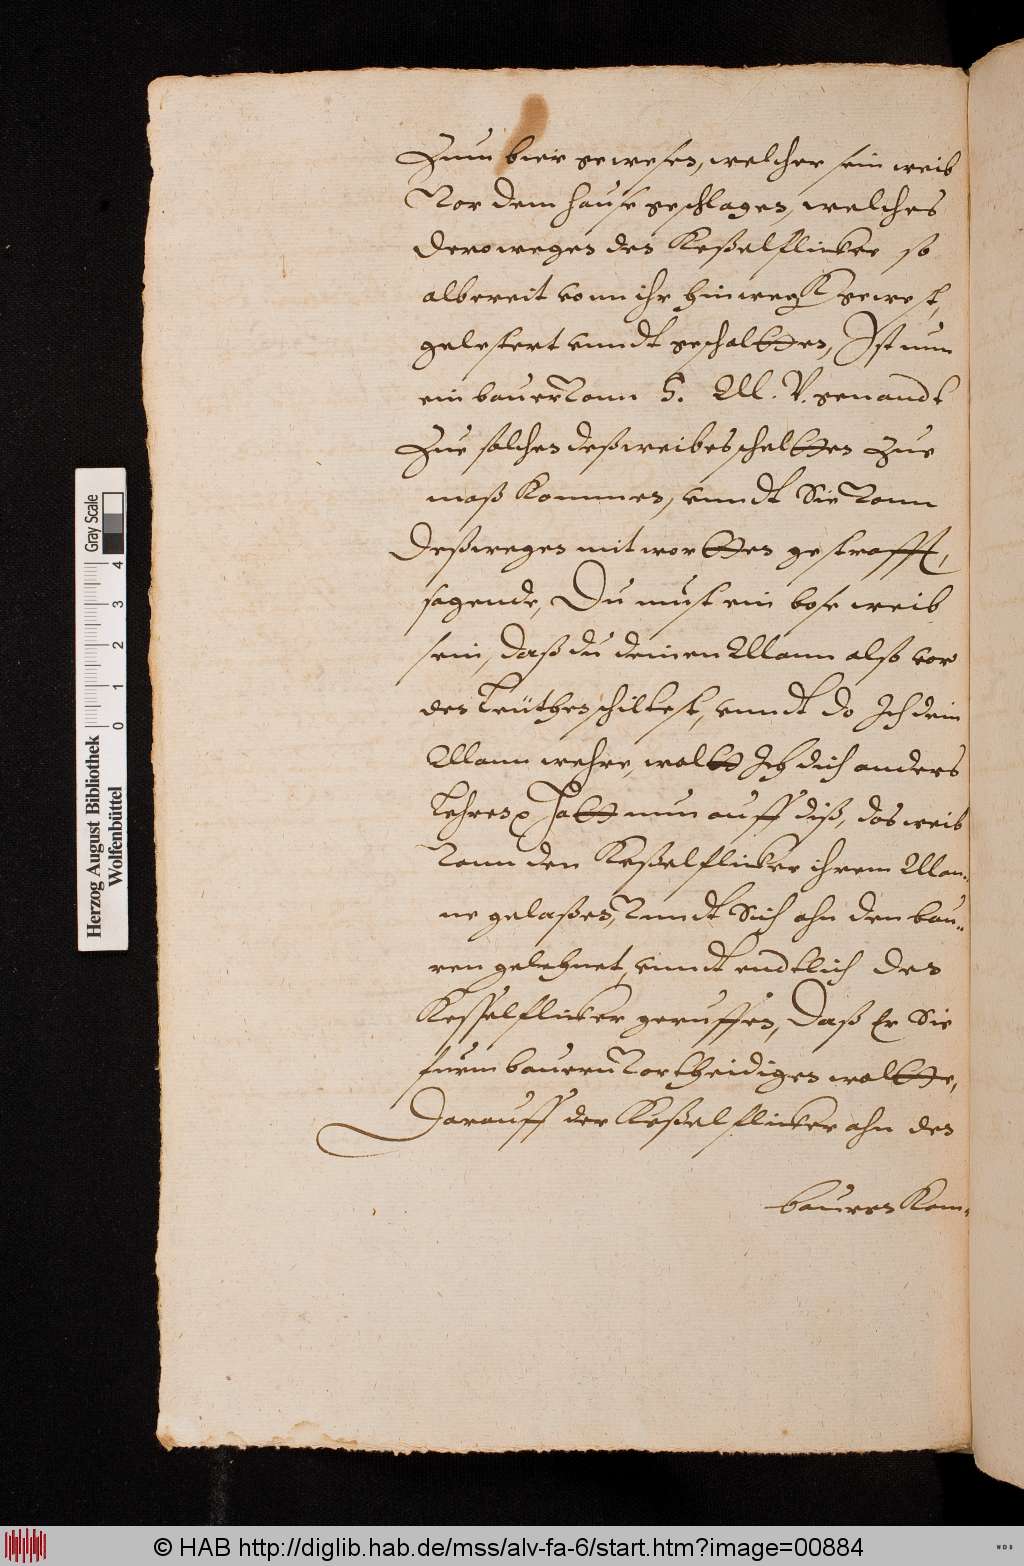 Zum bier gewesen, welcher sein weib
Vor dem hause geschlagen, welches
derowegen den Keßelflicker so
albereit vonn ihr hinwegk gewest,
gelestert vnndt gescholtten, Ist nun
ein bauer Vonn H. M. V. genandt
Zue solchen deß weibes scheltten Zue
maß Kommen, vnndt Sie Vonn
deßwegen mit wortten gestrafft,
sagende, Du must ein böse weib
sein, daß du deinen Mann alß vor
den Leüthen schiltest, vnndt do Ich dein
Mann wehre, woltt Ich dich anders
Lehren, hatt nun auff diß, das weib
Vonn den Keßelflicker ihrem Man-
ne gelaßen, Vnndt Sich ahn den bau-
ren gelehnet, vnndt endtlich den
Kesselflicker geruffen, Daß Er Sie
furm bauern Vortheidigen woltte,
Darauff der Keßelflicker ahn den
bauren Kom-
Herzog August Bibliothek
Wolfenbüttel
0 1 2 3 4
Gray Scale
© HAB http://diglib.hab.de/mss/alv-fa-6/start.htm?image=00884
WDB